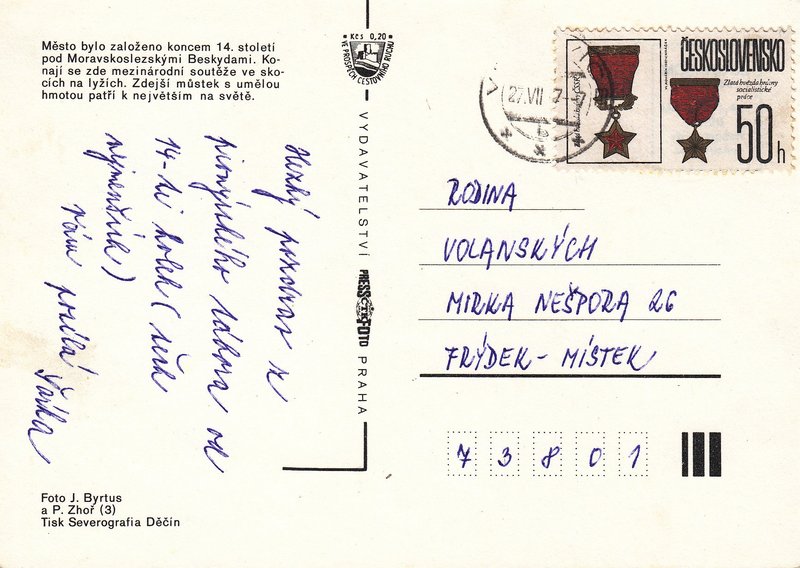 Město bylo založeno koncem 14. století
pod Moravskoslezskými Beskydami. Ko-
nají se zde mezinárodní soutěže ve sko-
cích na lyžích. Zdejší můstek s umělou
hmotou patří k největším na světě.
Hezký pozdrav z
pionýrského tábora od
14-ti holek (těch
nejmenších)
Vám posílá Šárka
Foto J. Byrtus
a P. Zhoř (3)
Tisk Severografia Děčín
Kčs 0,20
VE PROSPĚCH CESTOVNÍHO RUCHU
VYDAVATELSTVÍ PRESSFOTO PRAHA
ČTK
27.VII
ČESKOSLOVENSKO
Zlatá hvězda hrdiny
socialistické
práce
50h
RODINA
VOLANSKÝCH
MIRKA NEŠPORA 26
FRÝDEK-MÍSTEK
73801